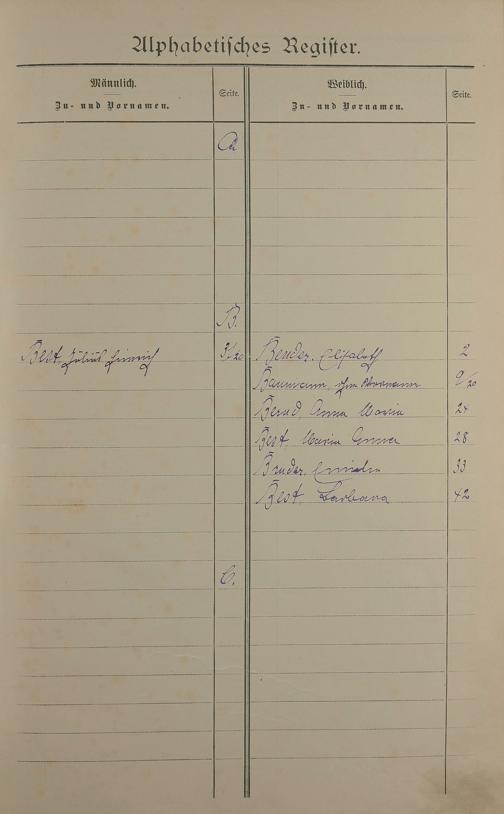 Alphabetisches Register.
Männlich.
Zu- und Vornamen.
Seite.
Weiblich.
Zu- und Vornamen.
Seite.
A
B.
Best, Julius Heinrich
Bender, Elisabeth 2
Baumann, ohne Vornamen 9/20
Bernd, Anna Maria 24
Best, Maria Emma 28
Bruder, 33
Best, Barbara 42
C.